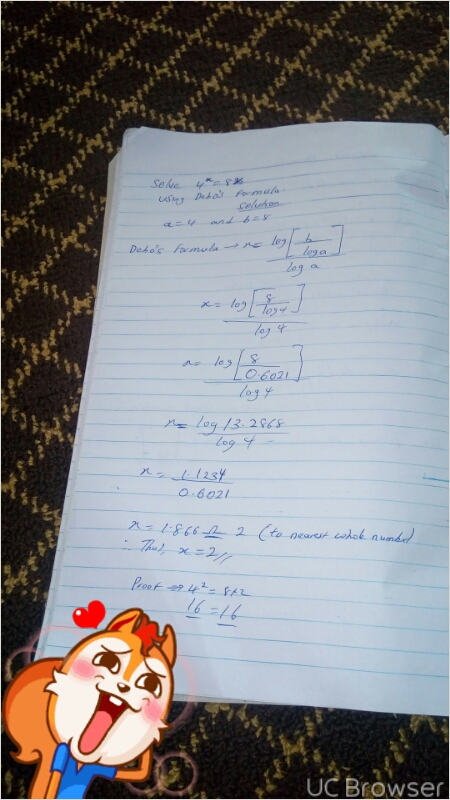 Solve 4^x = 8x
Using Deko's Formula
Solution
a=4 and b=8
Deko's Formula → x = log[b/log a]/log a
x = log[8/log 4]/log 4
x = log[8/0.6021]/log 4
x = log 13.2868/log 4
x = 1.1234/0.6021
x = 1.866 Ω 2 (to nearest whole number)
∴ Thus, x = 2//
Proof ⇒ 4² = 8×2
16 = 16
UC Browser